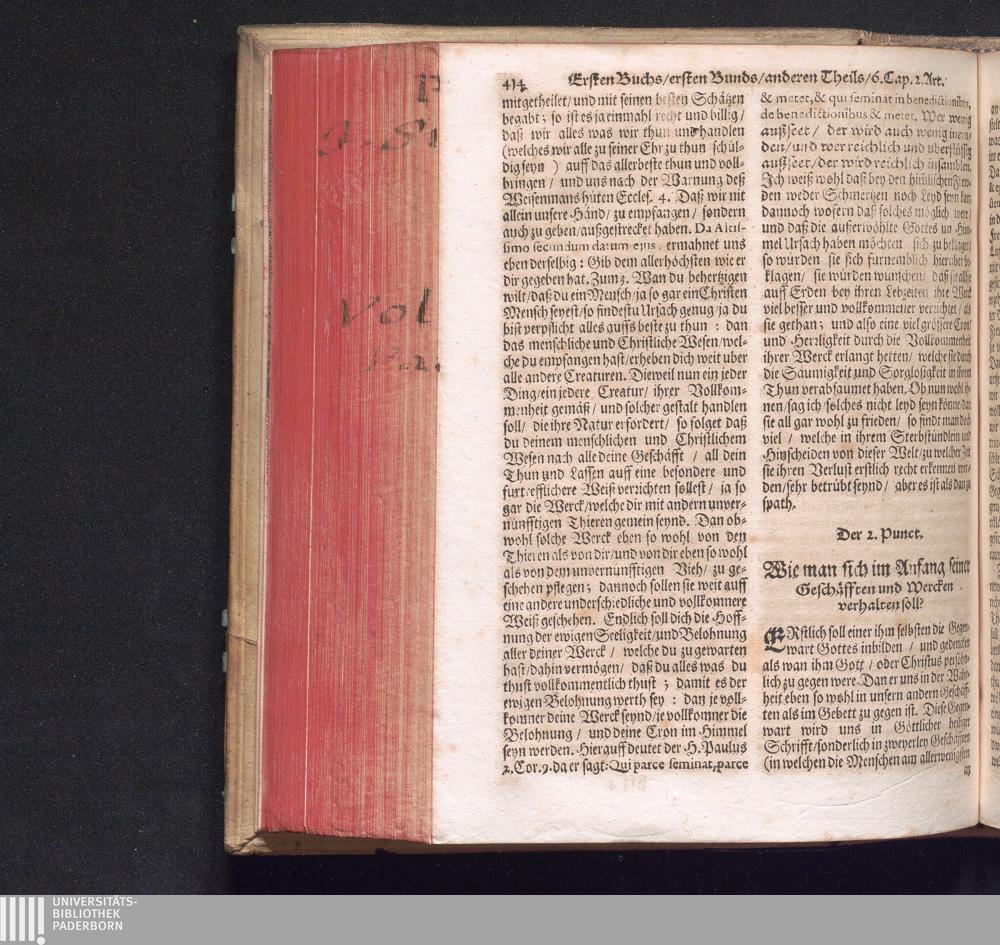 414 Ersten Buchs/ersten Bunds/anderen Theils/6. Cap. 2. Art.
mitgetheilet/und mit seinen besten Schätzen
begabt; so ist es ja einmahl recht und billig/
daß wir alles was wir thun und handlen
(welches wir alle zu seiner Ehr zu thun schül-
dig seyn) auff das allerbeste thun und voll-
bringen/ und uns nach der Warnung deß
Weisenmans hüten Eccles. 4. Daß wir nit
allein unsere Händ/ zu empfangen/ sondern
auch zu geben/außgestrecket haben. Da Altis-
simo secundum datum ejus, ermahnet uns
eben derselbig: Gib dem allerhöchsten wie er
dir gegeben hat. Zum 3. Wan du behertzigen
wilt/daß du ein Mensch/ja so gar ein Christen
Mensch seyest/so findestu Ursach genug/ja du
bist verpflicht alles auffs beste zu thun: dan
das menschliche und Christliche Wesen/wel-
che du empfangen hast/erheben dich weit uber
alle andere Creaturen. Dieweil nun ein jeder
Ding/ein jedere Creatur/ ihrer Vollkom-
menheit gemäß/ und solcher gestalt handlen
soll/ die ihre Natur erfordert/ so folget daß
du deinem menschlichen und Christlichem
Wesen nach alle deine Geschäfft/ all dein
Thun und Lassen auff eine besondere und
furtrefflichere Weiß verzichten sollest/ ja so
gar die Werck/welche dir mit andern unver-
nunfftigen Thieren gemein seynd. Dan ob-
wohl solche Werck eben so wohl von den
Thieren als von dir/und von dir eben so wohl
als von dem unvernunfftigen Vieh/ zu ge-
schehen pflegen; dannoch sollen sie weit auff
eine andere underschiedliche und vollkomnere
Weiß geschehen. Endlich soll dich die Hoff-
nung der ewigen Seeligkeit/und Belohnung
aller deiner Werck/ welche du zu gewarten
hast/dahin vermögen/ daß du alles was du
thust vollkommentlich thust; damit es der
ewigen Belohnung werth sey: dan je voll-
komner deine Werck seynd/je vollkomner die
Belohnung/ und deine Cron im Himmel
seyn werden. Hierauff deutet der H. Paulus
2. Cor. 9. da er sagt: Qui parce seminat, parce
& metet, & qui seminat in benedictionibus,
de benedictionibus & metet. Wer wenig
außseet/ der wird auch wenig
den/und wer reichlich und uberflüssig
außseet/der wird reichlich insamblen.
Ich weiß wohl daß bey den himlischen
den weder Schmertzen noch Leyd seyn kan;
dannoch wofern daß solches möglich were/
und daß die außerwöhlte Gottes im Him-
mel Ursach haben möchten sich zu beklagen/
so würden sie sich furnemblich hieruber be-
klagen/ sie würden wunschen/ daß sie allhie
auff Erden bey ihren Lebzeiten ihre Werck
viel besser und vollkommener verrichtet/ als
sie gethan; und also eine viel grössere Cron/
und Herrligkeit durch die Vollkommenheit
ihrer Werck erlangt hetten/ welche sie durch
die Säumigkeit und Sorglosigkeit in ihrem
Thun verabsaumet haben. Ob nun wohl ih-
nen/sag ich/solches nicht leyd seyn könne/dan
sie all gar wohl zu frieden/ so findt man doch
viel/ welche in ihrem Sterbstündlein und
Hinscheiden von dieser Welt/zu welcher Zeit
sie ihren Verlust erstlich recht erkennen wer-
den/sehr betrübt seynd/ aber es ist als dan zu
spath.
Der 2. Punct.
Wie man sich im Anfang seiner
Geschäfften und Wercken
verhalten soll?
ERstlich soll einer ihm selbsten die Gegen-
wart Gottes inbilden/ und gedencken
als wan ihm Gott/ oder Christus persöhn-
lich zu gegen were. Dan er uns in der Wahr-
heit eben so wohl in unsern andern Geschäff-
ten als im Gebett zu gegen ist. Diese Gegen-
wart wird uns in Göttlicher heiliger
Schrifft/sonderlich in zweyerley Geschäfften
(in welchen die Menschen am allerwenigsten
UNIVERSITÄTS-
BIBLIOTHEK
PADERBORN